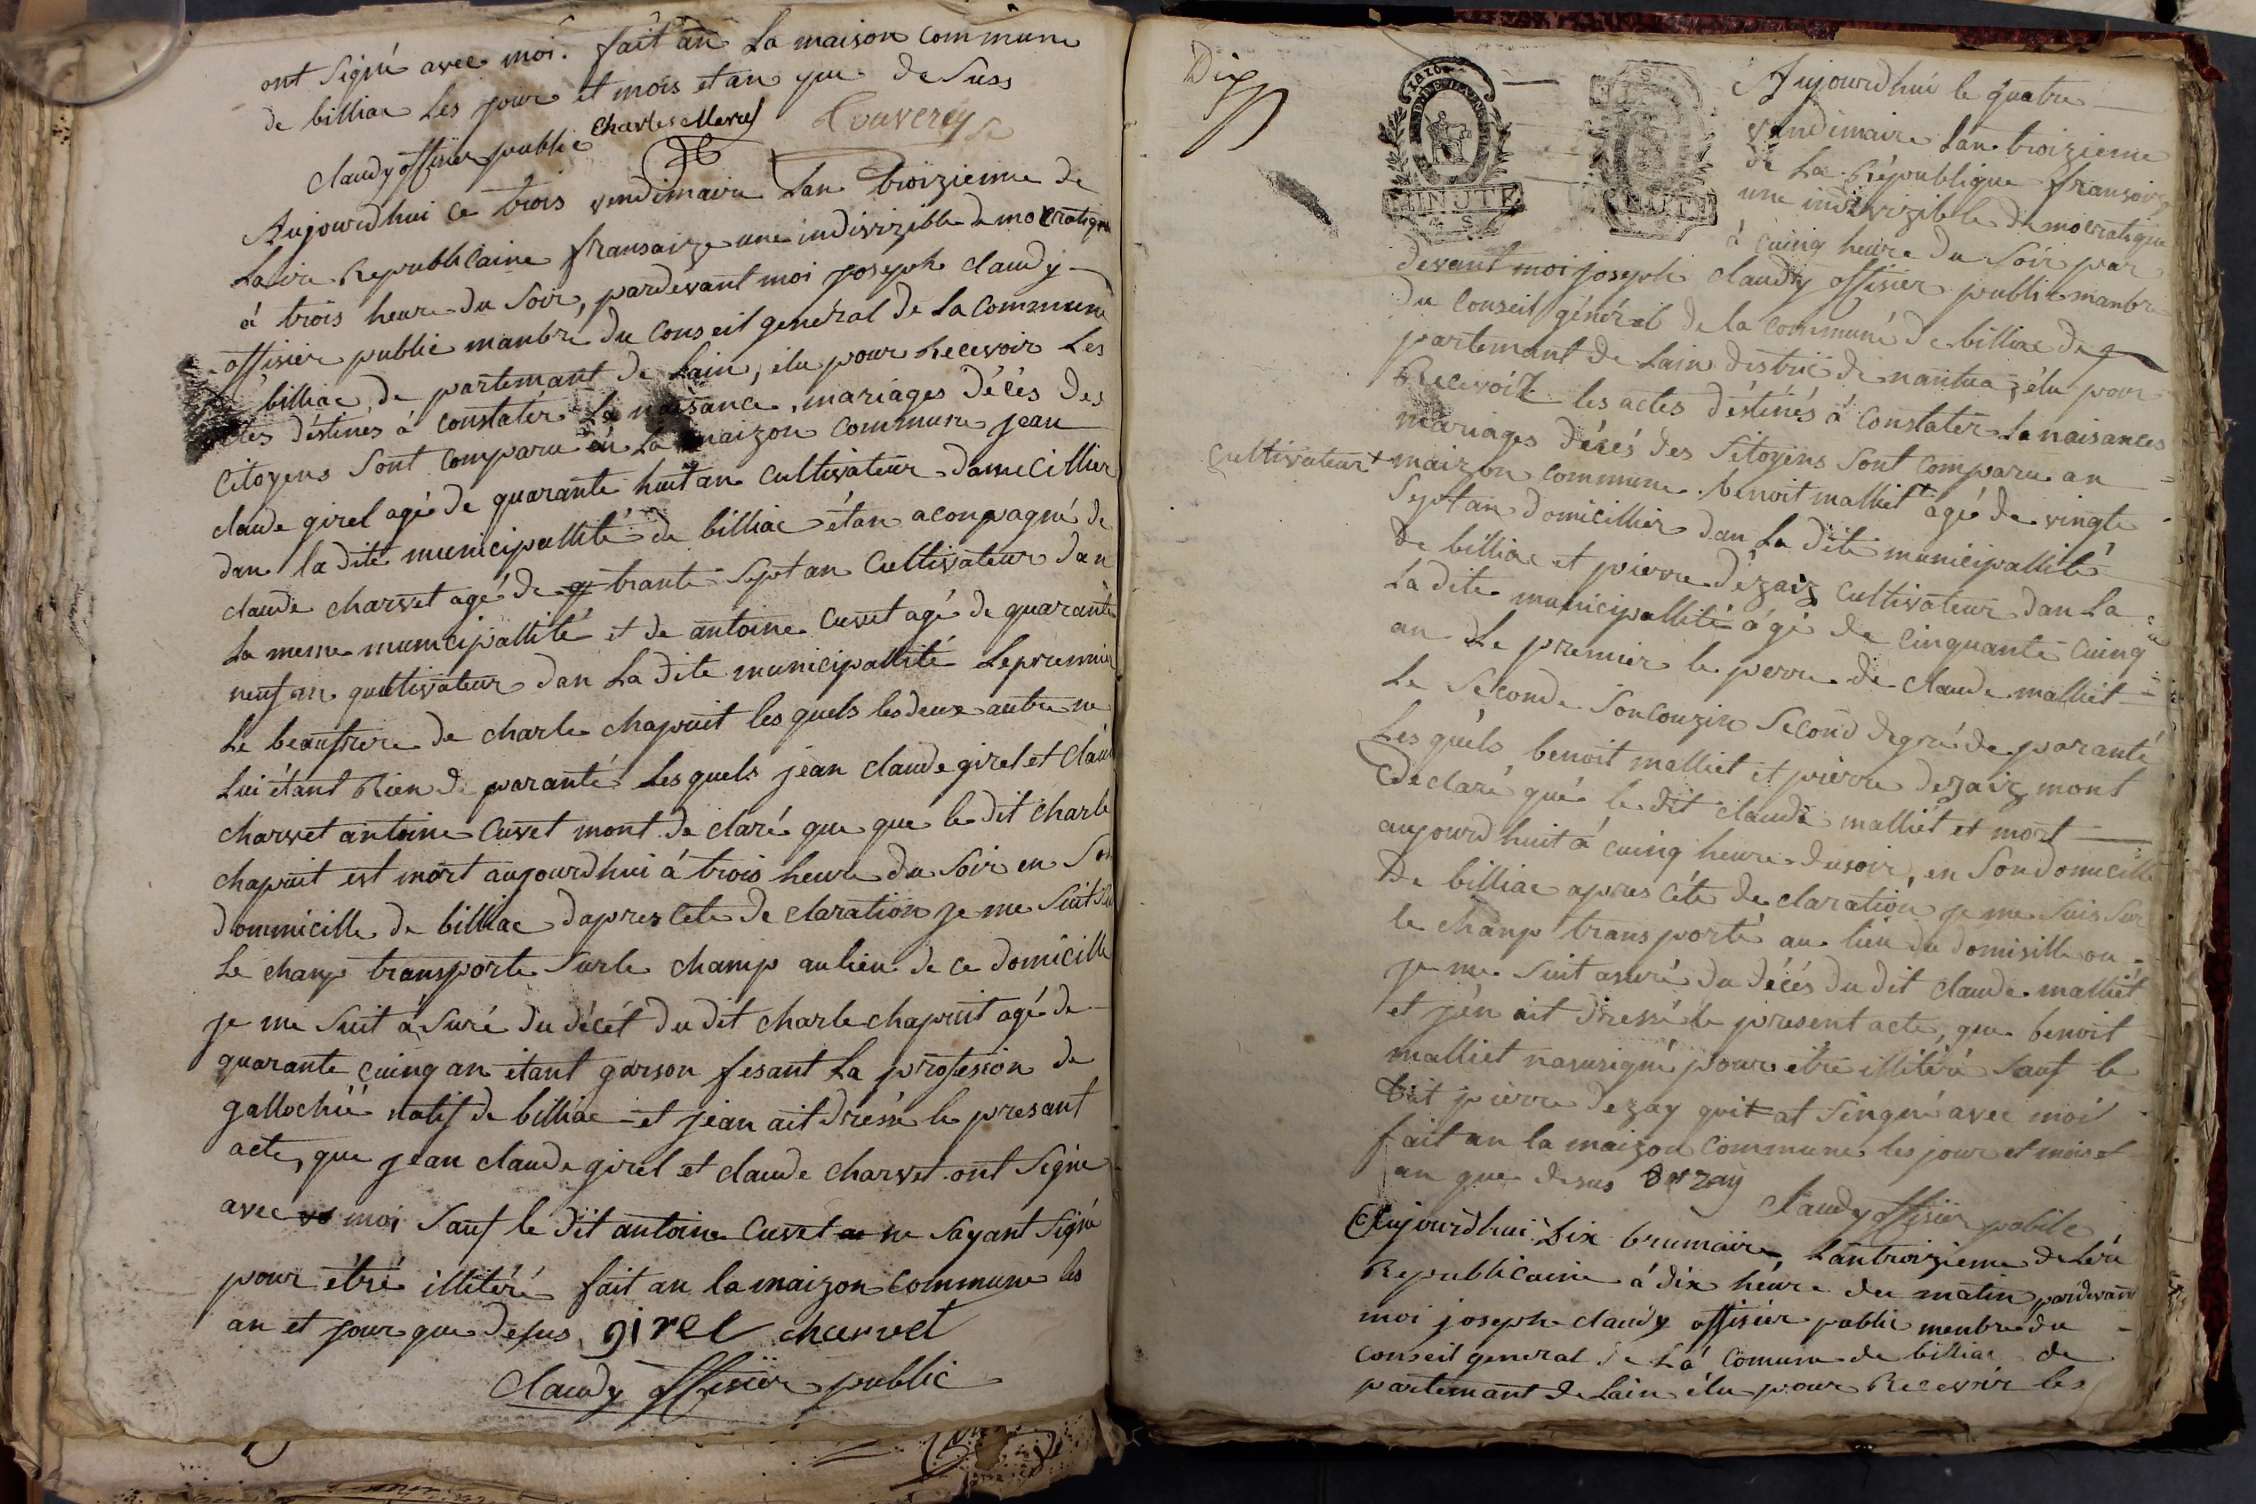 ont Signé avec moi. fait an La maison Commune
de billiac Les jour et mois et an que de Suss
Claudy offisier public Charles Mermet Convercy
Aujourdhui ce trois vendimaire Lan troizieme de
Laire Republicaine fransaize une indivizible democratique
á trois heure du Soir, pardevant moi joseph claudy
offisier public manbre du Conseil general de La Commune
billiac, de partemant de Lain, élu pour Recevoir Les
actes déstines á Constatér La naisance, mariages décés des
Citoyens Sont Comparu an La maizon Commune jean
claude girel agé de quarante huit an Cultivateur domicillier
dan la dite municipallité de billiac étan aconpagné de
claude charvet agé de trante Sept an Cultivateur dan
La meme municipallité et de antoine Cuvet agé de quarante
neuf an qultivateur dan La dite municipallité Le premier
Le beaufrere de charle chapuit les quels les deux autre ne
Lui étant Rien de paranté Les quels jean claude girel et claude
charvet antoine Cuvet mont de claré que que le dit charle
chapuit est mort aujourdhui á trois heure du Soir en Son
dommicille de billiac dapres cete de claration je me Suit Sur
Le chanp transporte Surle champ au lieu de ce domicille
je me Suit á Suré du décét du dit charle chapuit agé de
quarante cuinq an étant garson fesant La profesion de
gallochié natif de billiac et jean ait dressé le presant
acte, que jean claude girel et claude charvet ont Signe
avec moi Sauf le dit antoine Cuvet ne Sayant Signé
pour étré illitéré fait an la maizon Commune les
an et jour que desus girel charvet
Claudy offisier public
Dix
1810
MINUTE
Aujourdhui le quatre
vendimaire Lan troizieme
de La Republique fransoize
une indivizible démocratique
á cuinq heure du Soir par
devant moi joseph claudy offisier public manbre
du Conseil général de la Communé de billiac de
partemant de Lain distric de nantua, élu pour
Recevoir les actes déstinés á Constater La naisances
mariages décés des Sitoyens Sont Comparu an
Cultivateur + maizon Commune. benoit malliet + agé de vingte
Sept an domicillier dan La dite municipallité
de billiac et pierre dézaiz Cultivateur dan La
La dite municipallité ágé de Cinquante Cuinq
an Le premier le perre de claude malliet
Le Seconde Son Couzin Second degré de paranté
Les quéls benoit malliet et pierre dezaiz mont
declaré qué le dit claude malliét et mort
aujourdhuit á cuinq heure dusoir, en Son domicille
De billiac apres céte de claration je me Suis Sur
le chanp transporté au lieu du domisille ou
je me Suit asuré du décés du dit claude malliét
et jén ait dressé le present acte, que benoit
malliet nasusigné pour étre illitéré Sauf le
Dit pierre Dezay quit at Singné avec moi
fait an la maizon Commune les jour et mois et
an que desus Dezay
Claudy offisier publie
Aujourdhui Dix brumaire Lan troizieme de Léré
Republicaine á dix heure du matin pardevan
moi joseph claudy offisier public menbre du
Conseil general de La Comune de billiac de
partemant de Lain élu pour Recevoir les